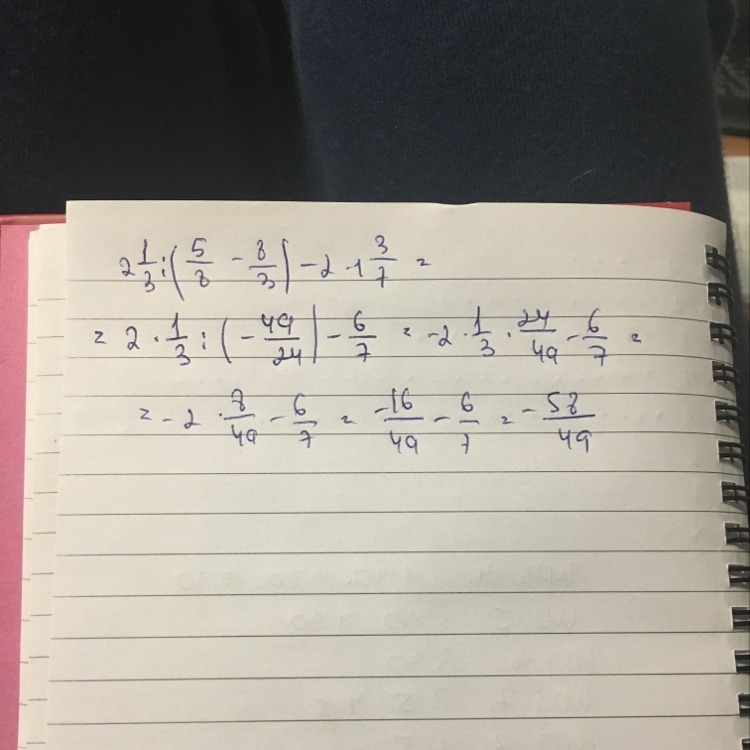 2 1/3 : (5/8 - 8/3) - 2 · 1 3/7 =
= 2 · 1/3 : (- 49/24) - 6/7 = -2 · 1/3 · 24/49 - 6/7 =
= - 2 · 8/49 - 6/7 = -16/49 - 6/7 = - 58/49